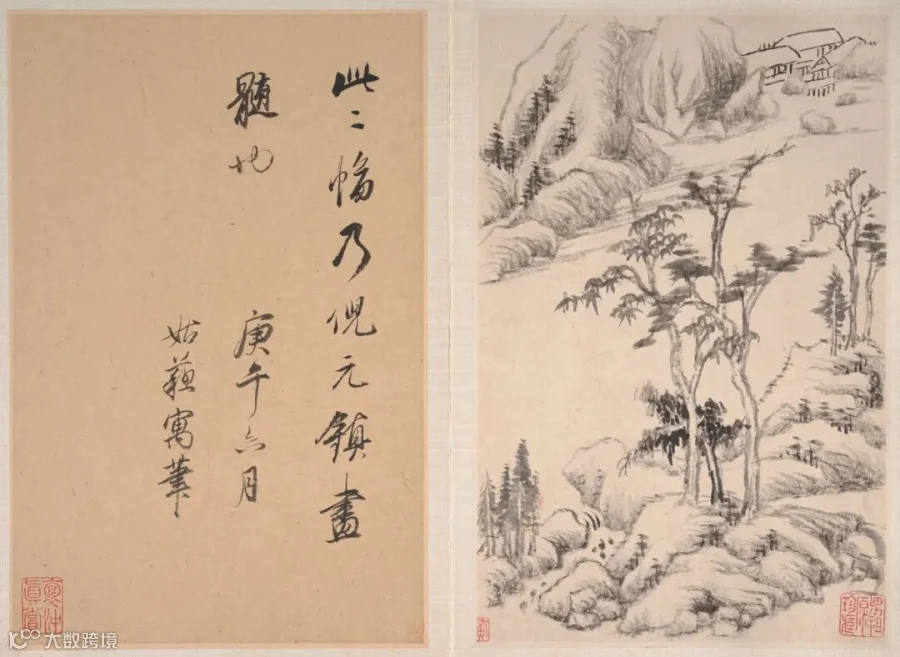 此二幅乃倪元鎮畫
髓也
庚午六月
姑蘓寓筆
大数跨境